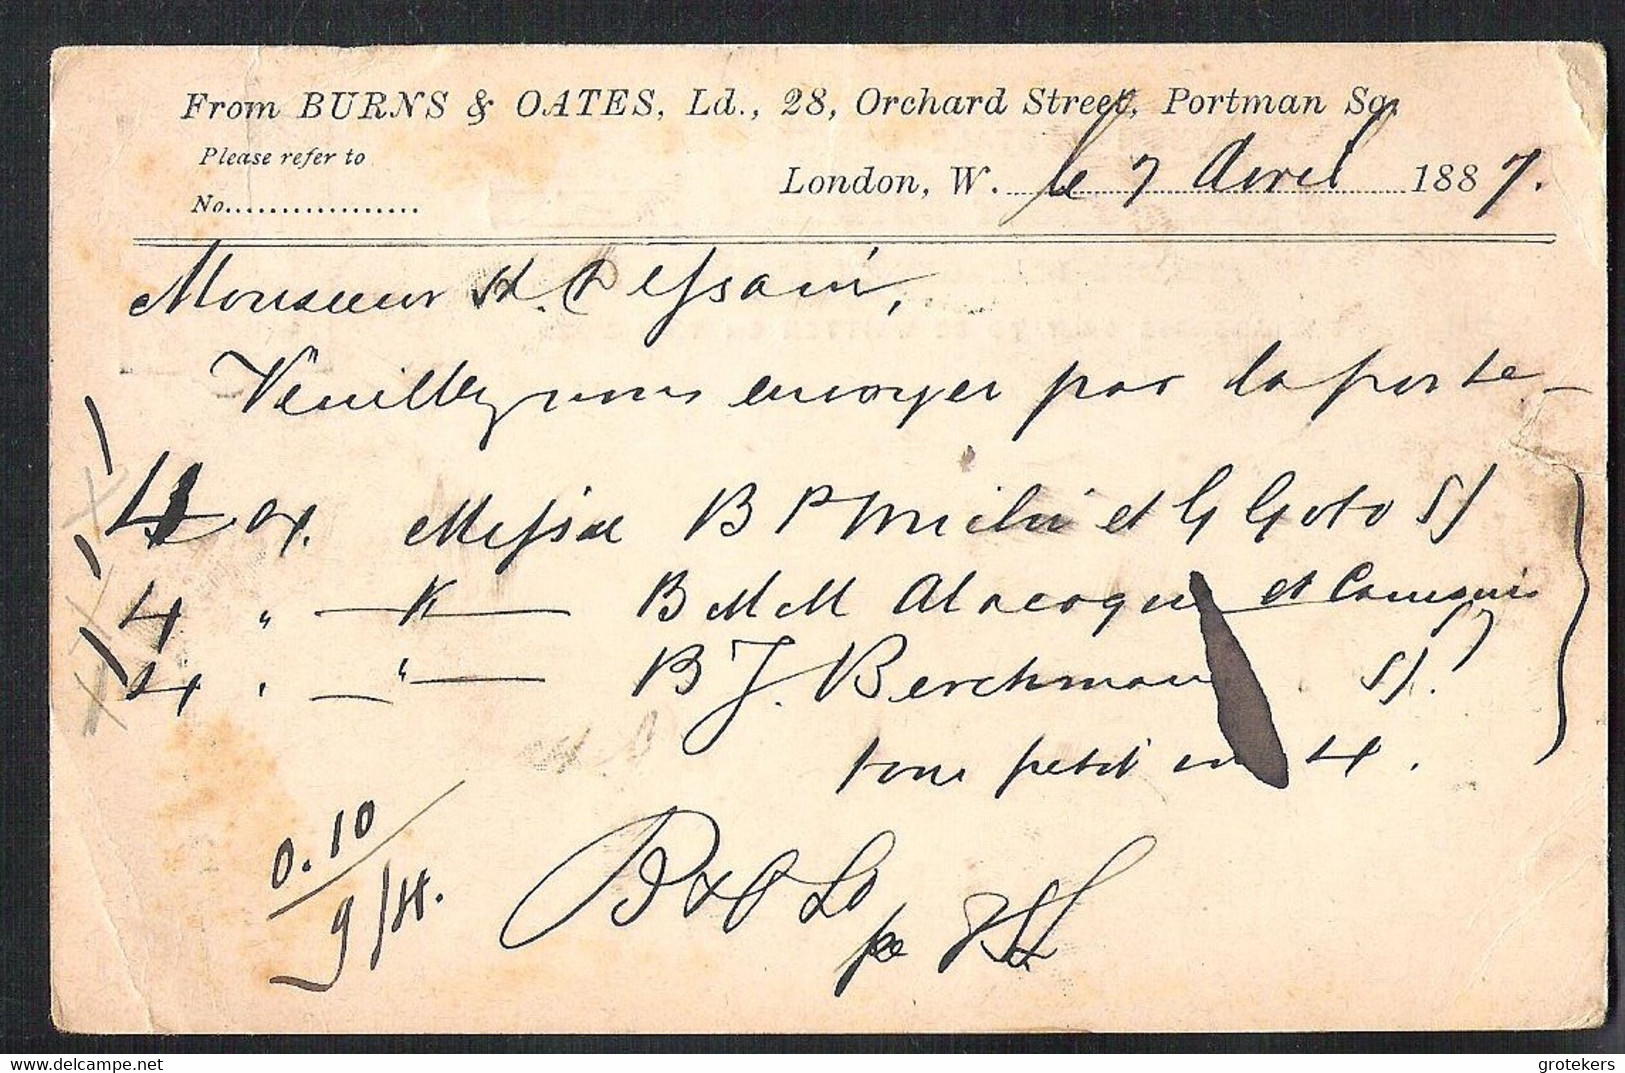 From BURNS & OATES, Ld., 28, Orchard Street, Portman Sq.
Please refer to
No..................
London, W. le 7 Avril 1887.
Monsieur H. Dessain,
Veuillez nous envoyer par la poste
4 ex. Missae B P Michi et G Goto SJ
4 " — " — B M M Alacoque et Canisii SJ
4 " — " — B J. Berchmans SJ.
tous petit in 4.
0.10
9/4.
B & O Ld
pe
grotekers